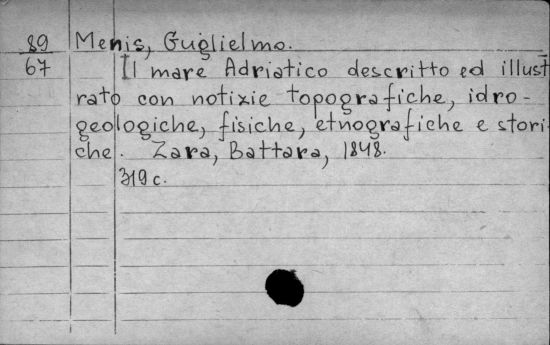 89 Menis, Guglielmo.
67 Il mare Adriatico descritto ed illust
rato con notizie topografiche, idro-
geologiche, fisiche, etnografiche e stori-
che. Zara, Battara, 1848.
319 c.